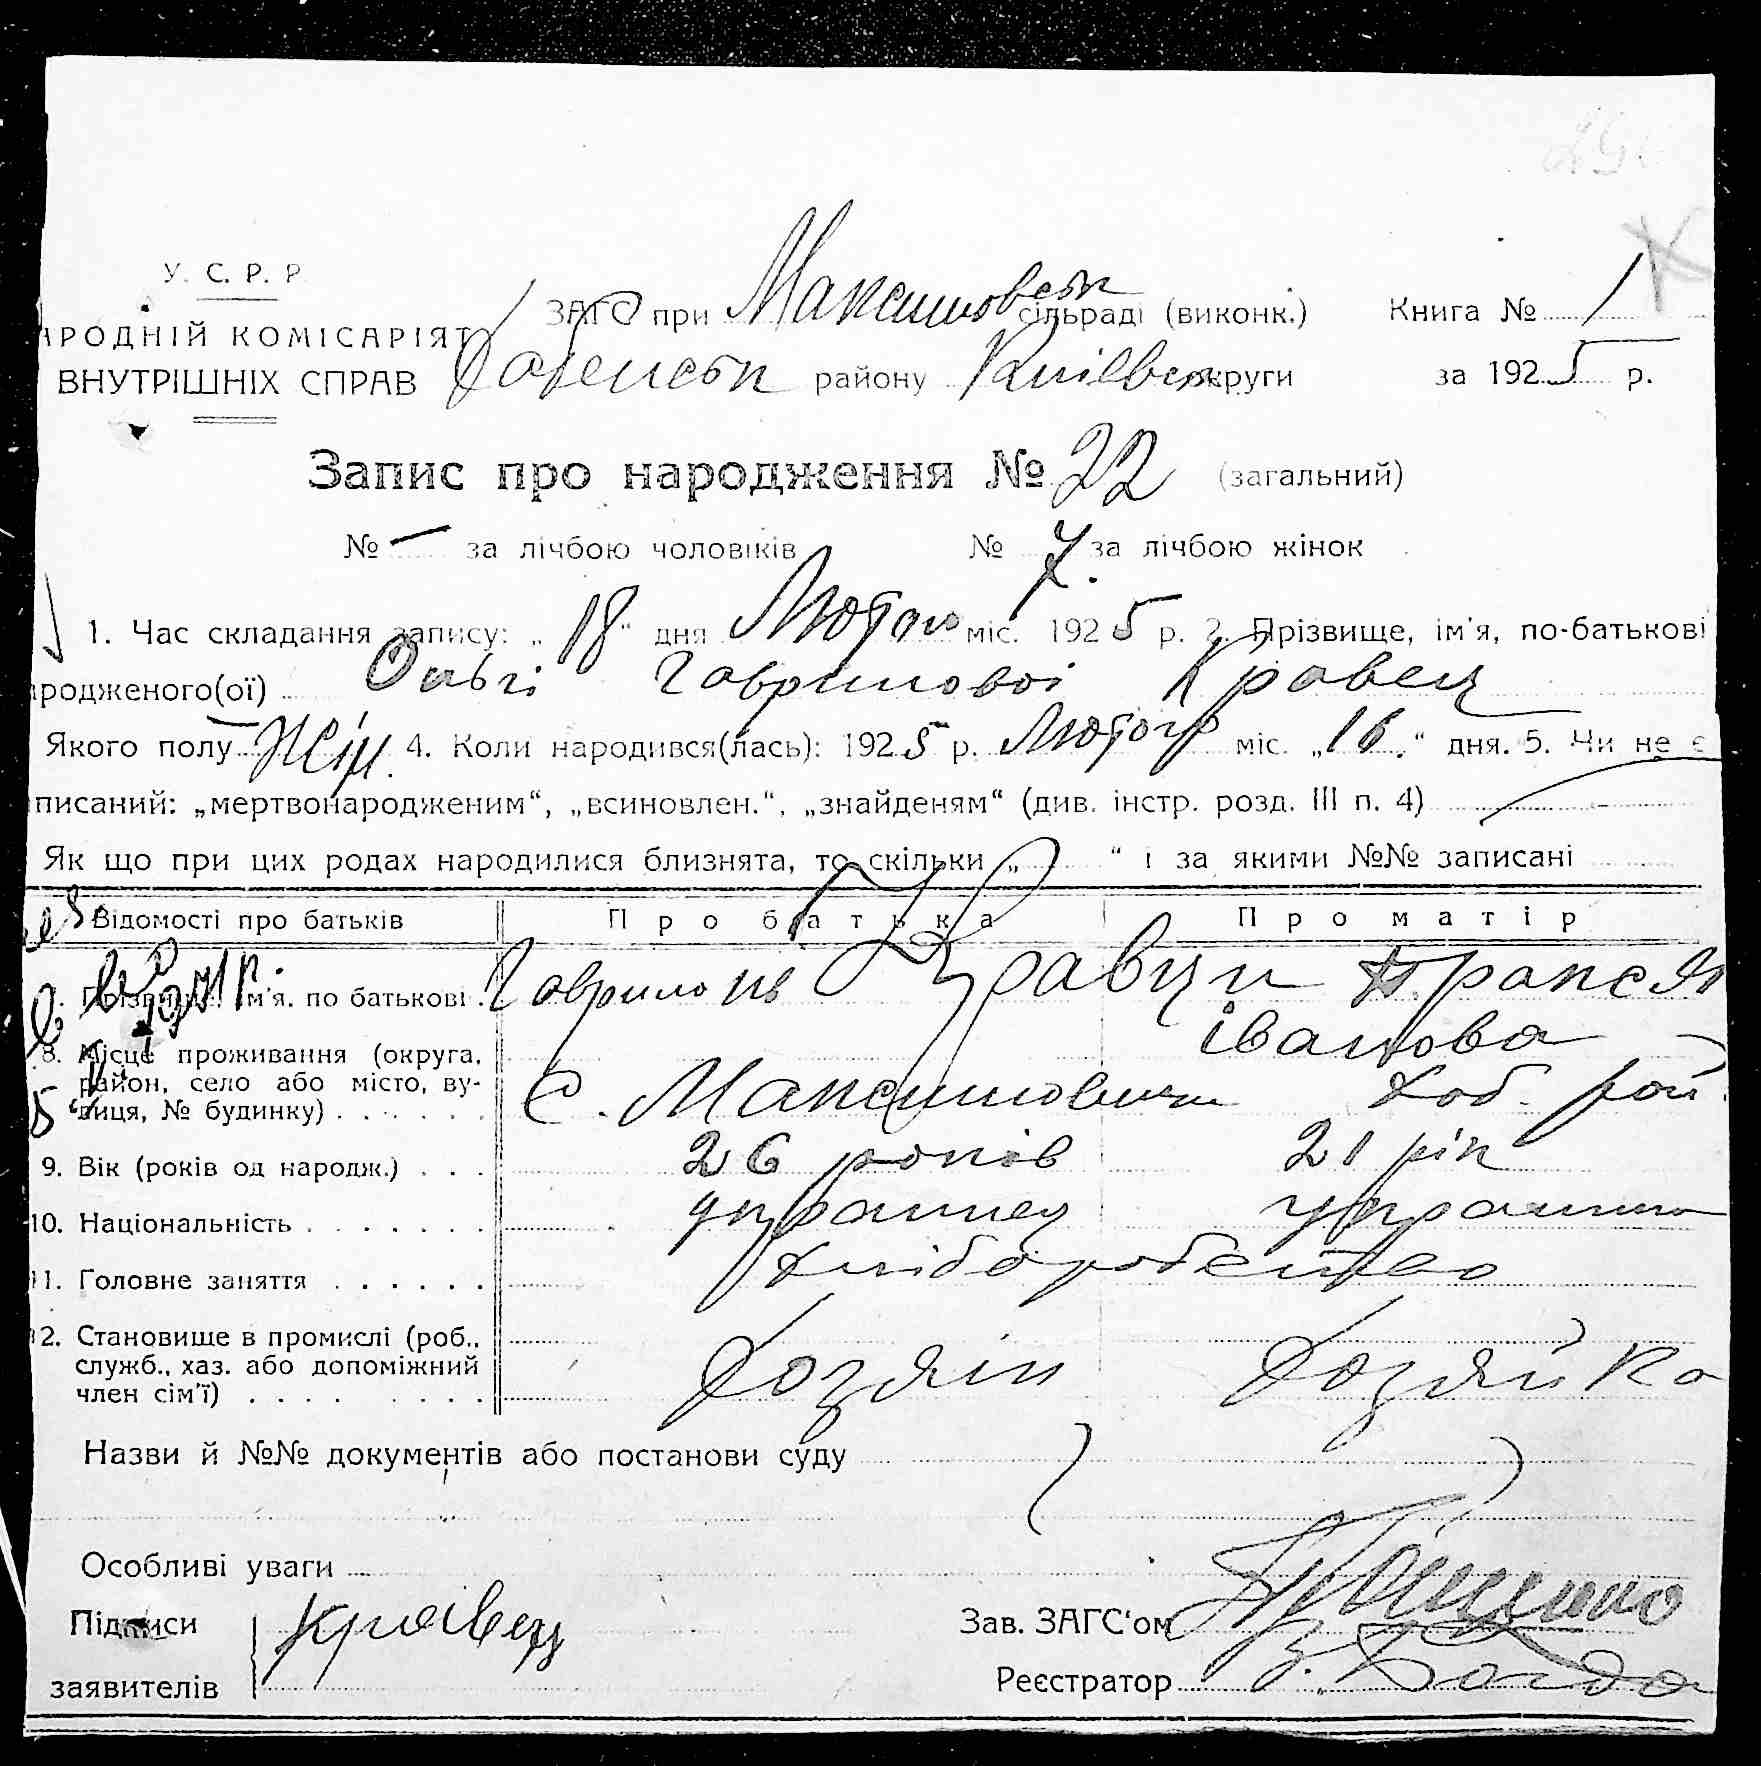 У. С. Р. Р
АРОДНІЙ КОМІСАРІЯТ
ВНУТРІШНІХ СПРАВ
ЗАГС при Максимовськ сільраді (виконк.) Книга № 1
Хабенськ району Київськ округи за 1925 р.
Запис про народження № 22 (загальний)
№ — за лічбою чоловіків № 7 за лічбою жінок
1. Час складання запису: „18“ дня Лютого міс. 1925 р. 2. Прізвище, ім'я, по-батькові
родженого(ої) Ользі Гавриловоі Кравец
Якого полу Жін. 4. Коли народився(лась): 1925 р. Лютого міс. „16.“ дня. 5. Чи не є
писаний: „мертвонародженим“, „всиновлен.“, „знайденям“ (див. інстр. розд. III п. 4)
Як що при цих родах народилися близнята, то скільки „ “ і за якими №№ записані
Відомості про батьків Про батька Про матір
Прізвище, ім'я. по батькові Гаврило Кравци
Іванова
8. Місце проживання (округа, район, село або місто, ву-
лиця, № будинку) с. Максимовичи Хаб. рай.
9. Вік (років од народж.) 26 років 21 рік
10. Національність украинец украинка
11. Головне заняття Хліборобство
12. Становище в промислі (роб., служб., хаз. або допоміжний
член сім'ї) Хозяін Хозяйка
Назви й №№ документів або постанови суду
Особливі уваги
Підписи Кравец Зав. ЗАГС‘ом
заявителів Реєстратор